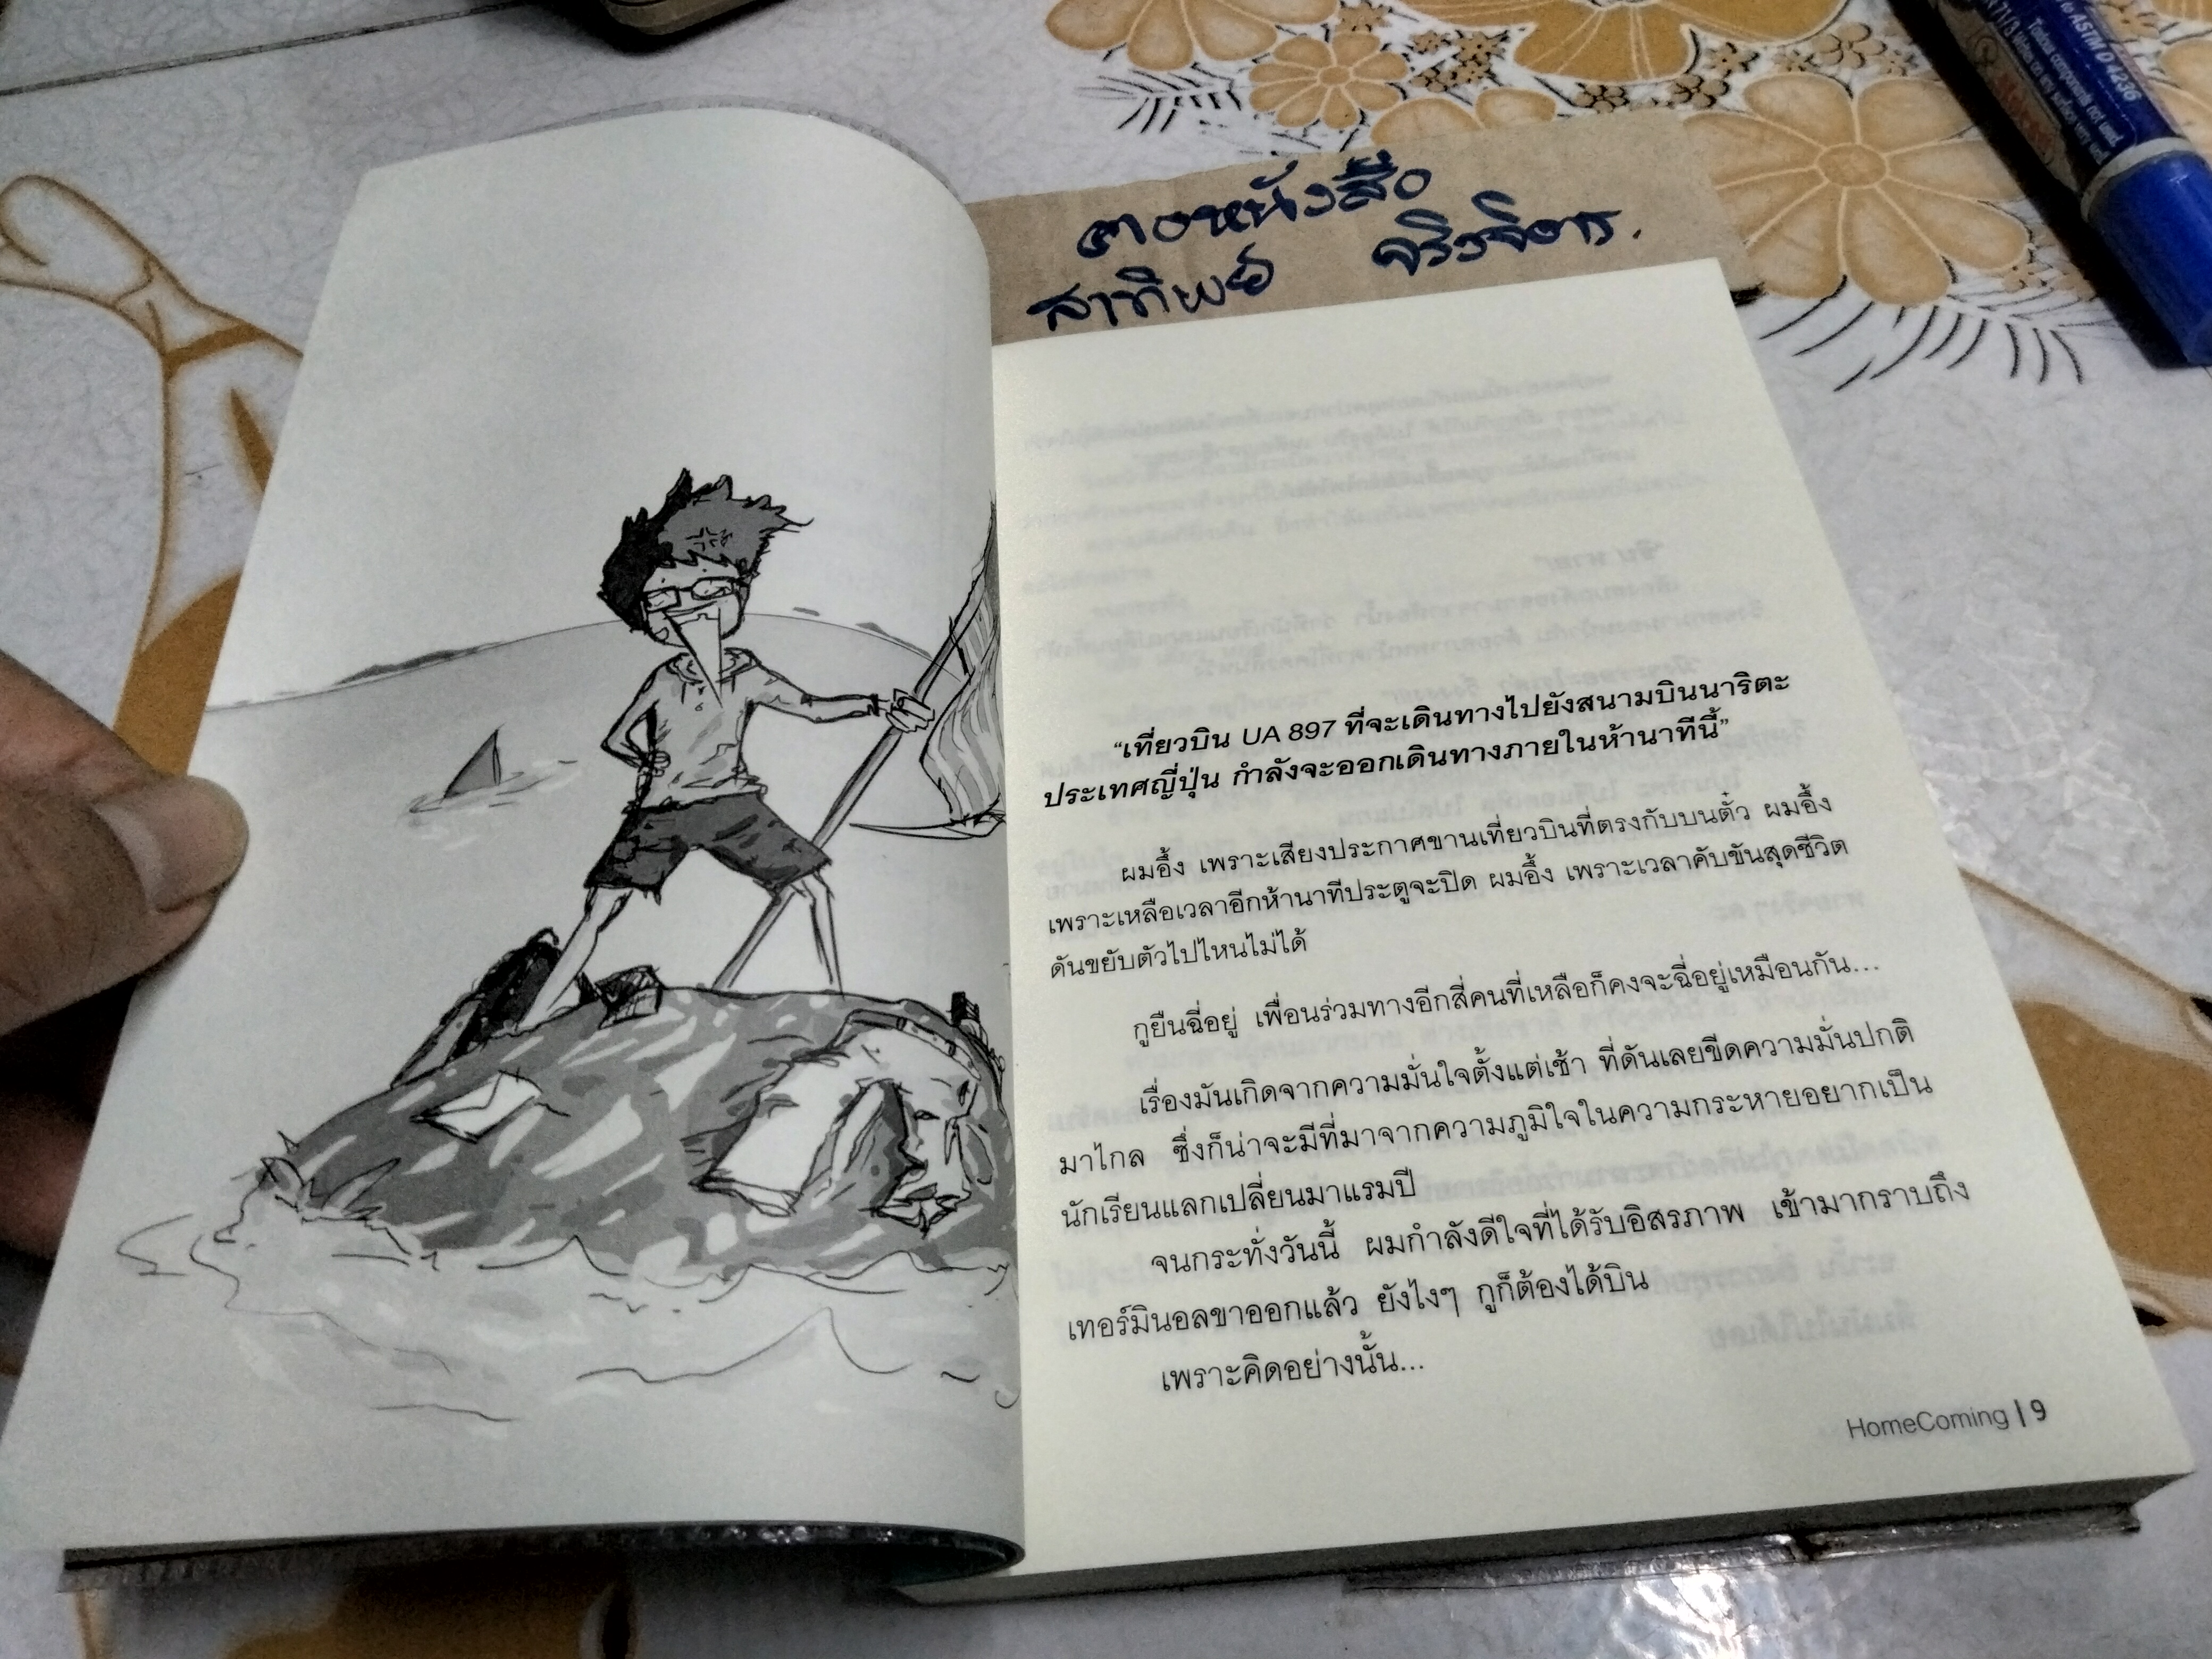 to ASTM D 4236
Toxious compounds not used.
Writes on any surface very well
ตอหนังสือ
สาทิพย์ จริงจิตร.
“เที่ยวบิน UA 897 ที่จะเดินทางไปยังสนามบินนาริตะ
ประเทศญี่ปุ่น กำลังจะออกเดินทางภายในห้านาทีนี้”
ผมอึ้ง เพราะเสียงประกาศขานเที่ยวบินที่ตรงกับบนตั๋ว ผมอึ้ง
เพราะเหลือเวลาอีกห้านาทีประตูจะปิด ผมอึ้ง เพราะเวลาคับขันสุดชีวิต
ดันขยับตัวไปไหนไม่ได้
กูยืนฉี่อยู่ เพื่อนร่วมทางอีกสี่คนที่เหลือก็คงจะฉี่อยู่เหมือนกัน...
เรื่องมันเกิดจากความมั่นใจตั้งแต่เช้า ที่ดันเลยขีดความมั่นปกติ
มาไกล ซึ่งก็น่าจะมีที่มาจากความภูมิใจในความกระหายอยากเป็น
นักเรียนแลกเปลี่ยนมาแรมปี
จนกระทั่งวันนี้ ผมกำลังดีใจที่ได้รับอิสรภาพ เข้ามากราบถึง
เทอร์มินอลขาออกแล้ว ยังไงๆ กูก็ต้องได้บิน
เพราะคิดอย่างนั้น...
HomeComing | 9